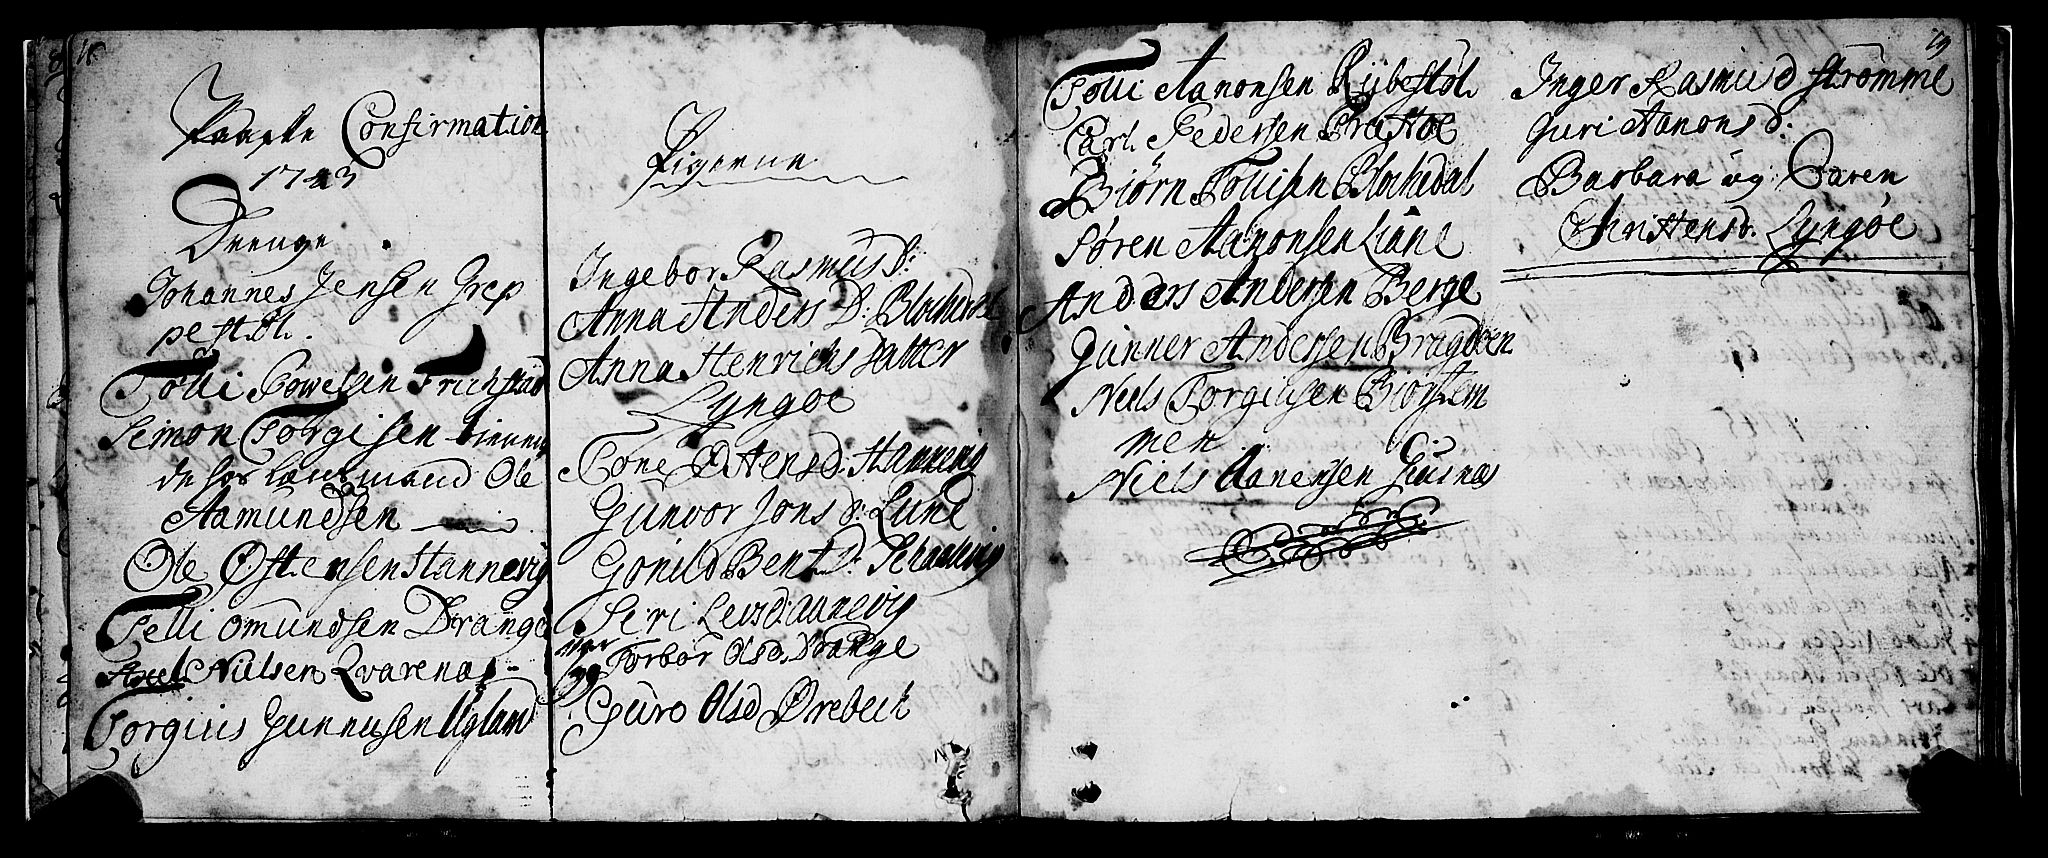 18
Paaske Confirmation
1743
Drenge
Johannes Jensen Grep
pestøl.
Tolli Powelsen Frichstad
Simon Torgisen tienen
de hos Lensmand Ole
Aamundsen
Ole Østensen Hannevig
Telli Omundsen Drange
Axel Nielsen Qvarenæs
Torgius Gunnusen Ugland
Pigerne
Ingebor Rasmusd:
Anna Anders D: Blochedal
Anna Henrichs Datter
Lyngøe
Tone Østensd. Hannevig
Gunvor Jons d: Lund
Gonild Bent D: Schaalevig
Siri Levsd: aanevig
Torbor Olsd. Drange
Guro Olsd Ørebech
19
Tolli Aanonsen Rybestøl
Carl Pedersen Præstøe
Biørn Tollisen Blochedal
Søren Aanonsen Liane
Anders Andersen Berge
Gunner Andersen Bragdøen
Niels Torgiusen Biørstem
men
Niels Aanensen Giusnæs
Inger Rasmusd Strømme
Guri Aanons d:
Barbara og Caren
Christensd. Lyngøe